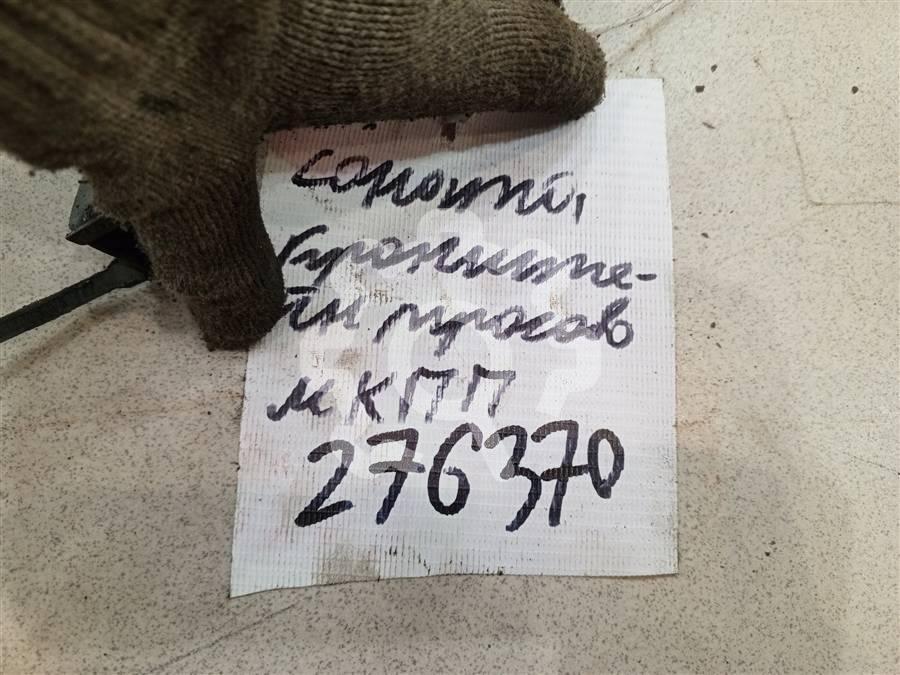 Соната,
Кронште-
йн тросов
МКПП
276370